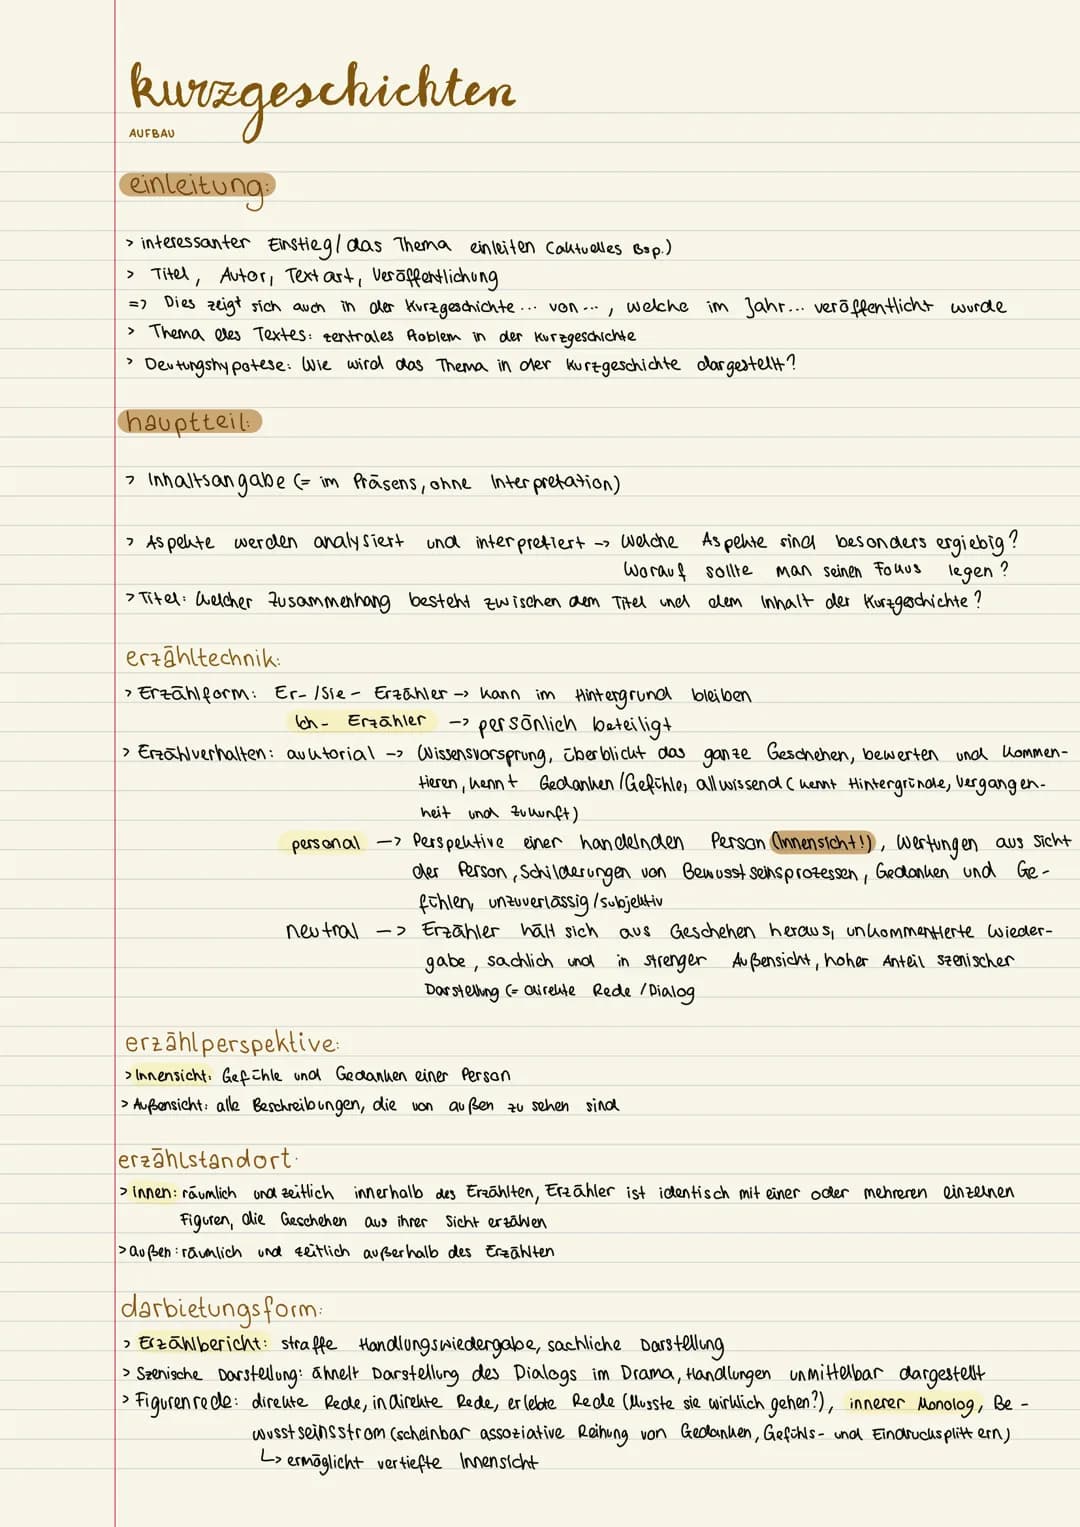 kurzgeschichten
AUFBAU
einleitung:
> interessanter Einstieg/das Thema einleiten (aktuelles Bsp.)
> Titel, Autor, Textart, Veröffentlichung
=> Dies zeigt sich auch in der Kurzgeschichte... von..., welche im Jahr... veröffentlicht wurde
> Thema des Textes: zentrales Problem in der Kurzgeschichte
> Deutungshypotese: Wie wird das Thema in der Kurzgeschichte dargestellt?
hauptteil:
> Inhaltsangabe (= im Präsens, ohne Interpretation)
> Aspekte werden analysiert und interpretiert -> Welche Aspekte sind besonders ergiebig?
Worauf sollte man seinen Fokus legen?
> Titel: Welcher Zusammenhang besteht zwischen dem Titel und dem Inhalt der Kurzgeschichte?
erzähltechnik:
> Erzählform: Er-/Sie- Erzähler -> kann im Hintergrund bleiben
Ich- Erzähler -> persönlich beteiligt
> Erzählverhalten: auktorial -> Wissensvorsprung, überblickt das ganze Geschehen, bewerten und kommen-
tieren, kennt Gedanken/Gefühle, allwissend (kennt Hintergründe, Vergangen-
heit und Zukunft)
personal -> Perspektive einer handelnden Person (Innensicht!), Wertungen aus Sicht
der Person, Schilderungen von Bewusstseinsprozessen, Gedanken und Ge-
fühlen, unzuverlässig/subjektiv
neutral -> Erzähler hält sich aus Geschehen heraus, unkommentierte Wieder-
gabe, sachlich und in strenger Außensicht, hoher Anteil szenischer
Darstellung (= direkte Rede /Dialog
erzählperspektive:
> Innensicht: Gefühle und Gedanken einer Person
> Außensicht: alle Beschreibungen, die von außen zu sehen sind
erzählstandort:
> innen: räumlich und zeitlich innerhalb des Erzählten, Erzähler ist identisch mit einer oder mehreren einzelnen
Figuren, die Geschehen aus ihrer Sicht erzählen
> außen: räumlich und zeitlich außerhalb des Erzählten
darbietungsform:
> Erzählbericht: straffe Handlungswiedergabe, sachliche Darstellung
> Szenische Darstellung: ähnelt Darstellung des Dialogs im Drama, Handlungen unmittelbar dargestellt
> Figurenrede: direkte Rede, indirekte Rede, erlebte Rede (Musste sie wirklich gehen?), innerer Monolog, Be-
wusstseinsstrom (scheinbar assoziative Reihung von Gedanken, Gefühls- und Eindruckssplittern)
↳ ermöglicht vertiefte Innensicht